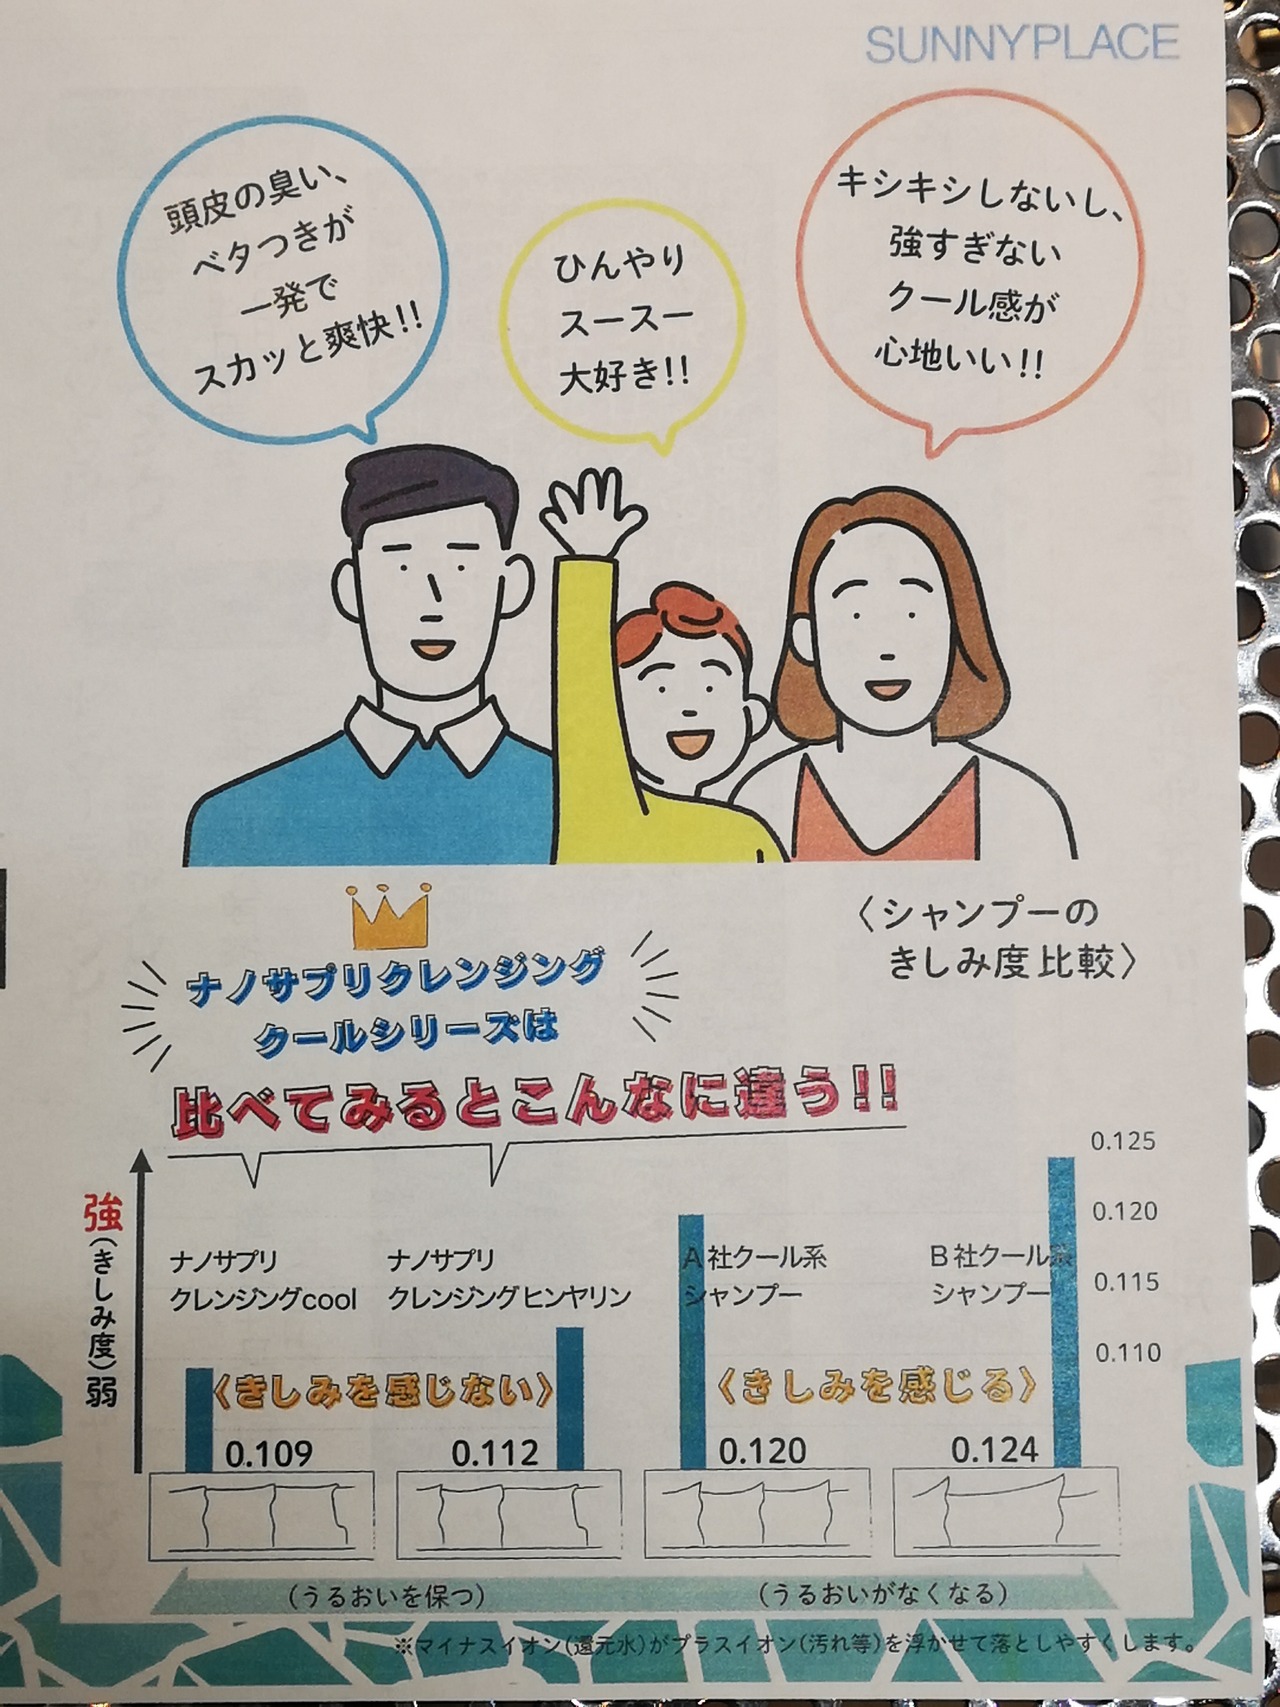 SUNNYPLACE
頭皮の臭い、
ベタつきが
一発で
スカッと爽快!!
ひんやり
スースー
大好き!!
キシキシしないし、
強すぎない
クール感が
心地いい!!
〈シャンプーの
きしみ度比較〉
ナノサプリクレンジング
クールシリーズは
比べてみるとこんなに違う!!
強(きしみ度)弱
0.125
0.120
0.115
0.110
ナノサプリ
クレンジングcool
ナノサプリ
クレンジングヒンヤリン
A社クール系
シャンプー
B社クール系
シャンプー
〈きしみを感じない〉
〈きしみを感じる〉
0.109
0.112
0.120
0.124
(うるおいを保つ)
(うるおいがなくなる)
※マイナスイオン(還元水)がプラスイオン(汚れ等)を浮かせて落としやすくします。